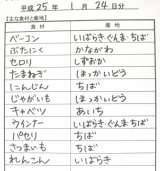 平成 25年 1月 24日分
【主な食材と産地】
食材 産地
ベーコン いばらき・ぐんま・ちば
ぶたにく かながわ
セロリ しずおか
たまねぎ ほっかいどう
にんじん ちば
じゃがいも ほっかいどう
キャベツ あいち
ウインナー いばらき・ぐんま・ちば
パセリ ちば
さつまいも ちば
れんこん いばらき